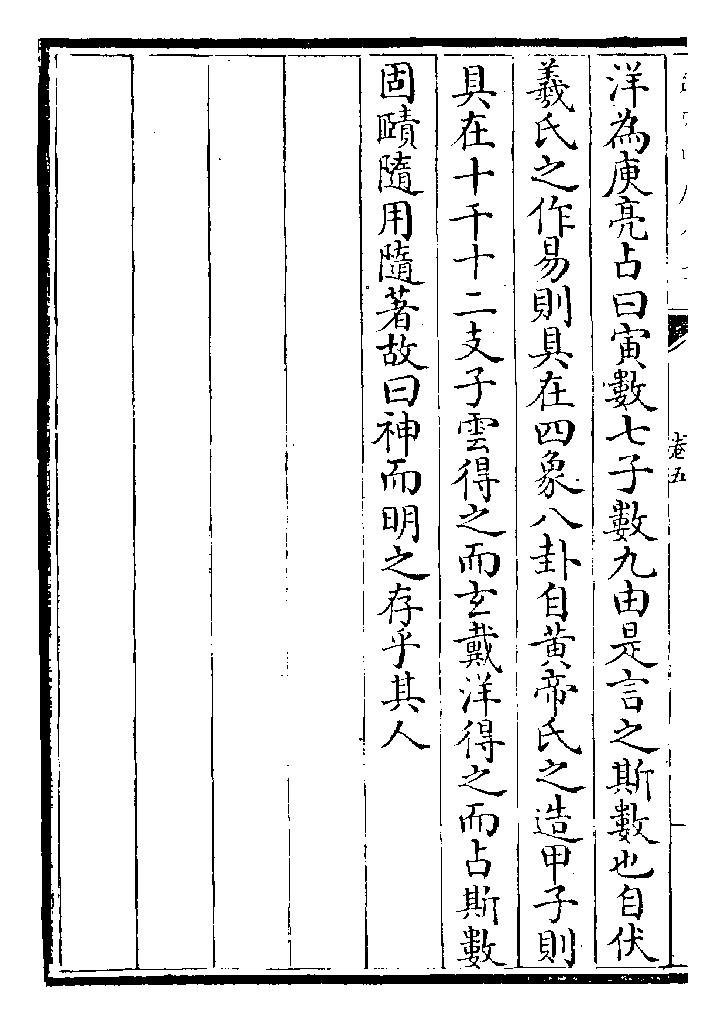 洋為庾亮占曰寅數七子數九由是言之斯數也自伏
羲氏之作易則具在四象八卦自黄帝氏之造甲子則
具在十干十二支子雲得之而玄戴洋得之而占斯數
固賾隨用隨著故曰神而明之存乎其人
卷五